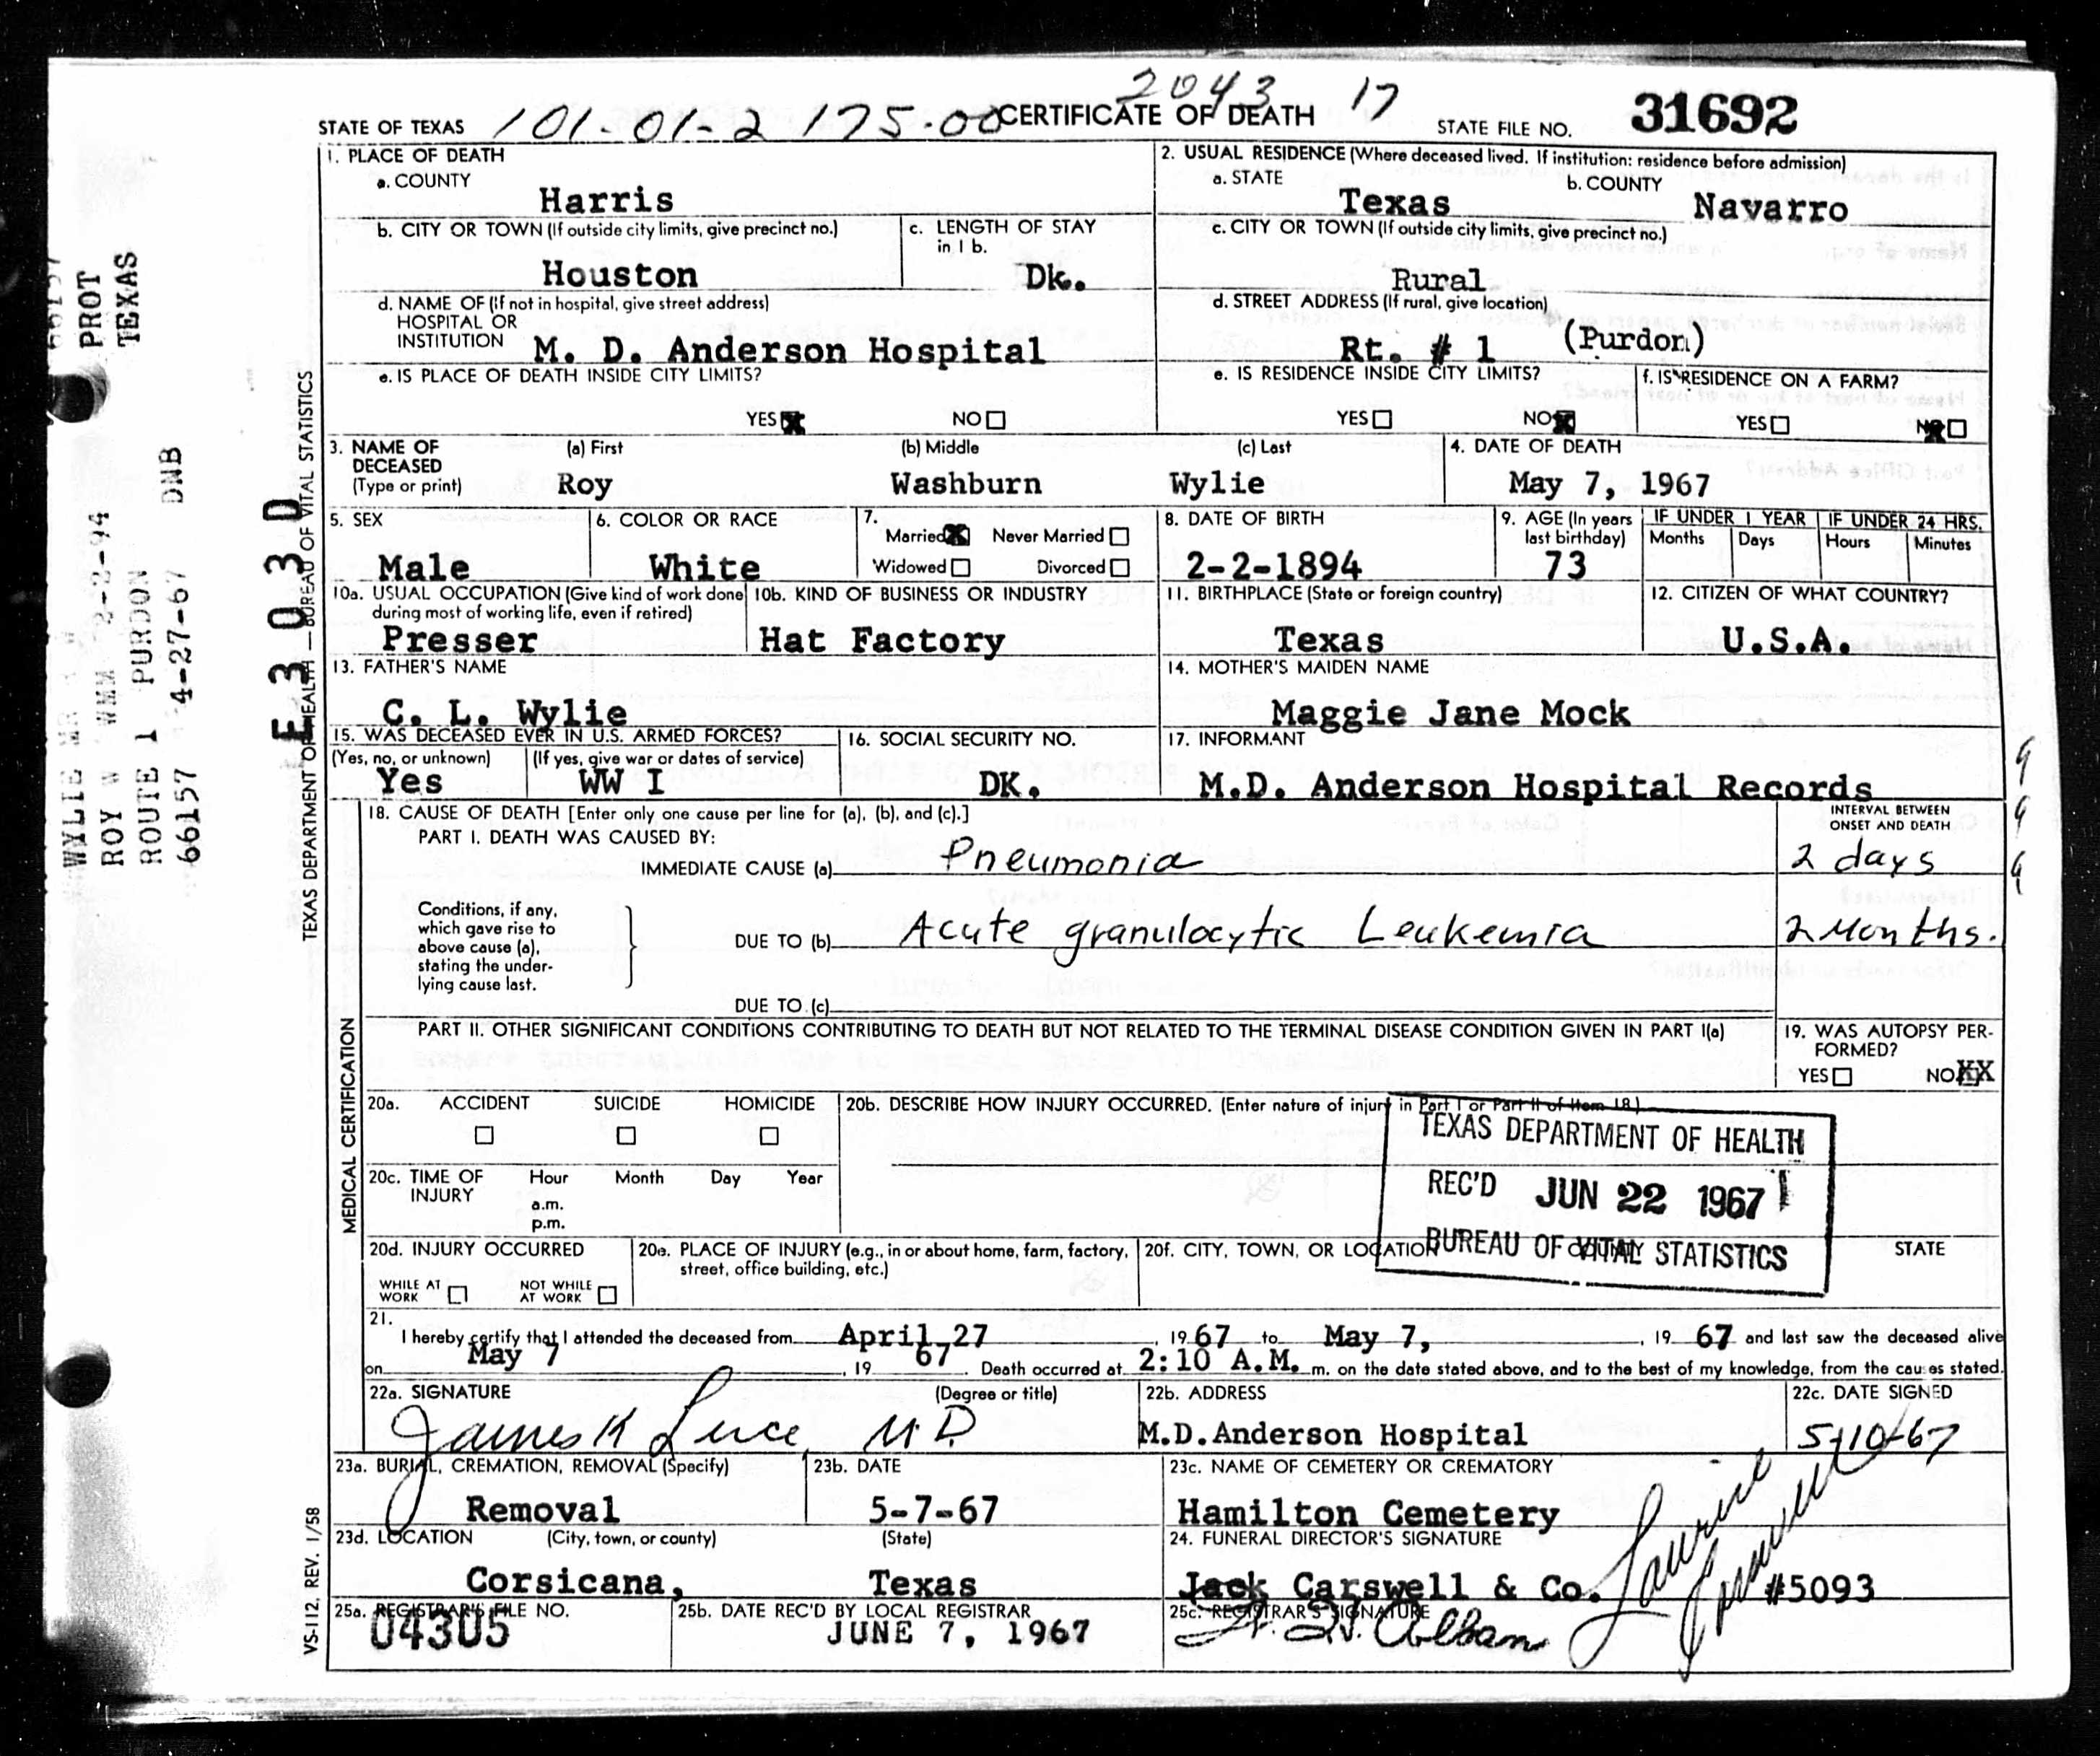 2043 17
STATE OF TEXAS 101-01-2 175.00 CERTIFICATE OF DEATH STATE FILE NO. 31692
1. PLACE OF DEATH
a. COUNTY
Harris
2. USUAL RESIDENCE (Where deceased lived. If institution: residence before admission)
a. STATE b. COUNTY
Texas Navarro
b. CITY OR TOWN (If outside city limits, give precinct no.)
Houston
c. LENGTH OF STAY
in 1 b.
Dk.
c. CITY OR TOWN (If outside city limits, give precinct no.)
Rural
d. NAME OF (If not in hospital, give street address)
HOSPITAL OR
INSTITUTION M. D. Anderson Hospital
d. STREET ADDRESS (If rural, give location)
Rt. # 1 (Purdon)
e. IS PLACE OF DEATH INSIDE CITY LIMITS?
YES NO
e. IS RESIDENCE INSIDE CITY LIMITS?
YES NO
f. IS RESIDENCE ON A FARM?
YES NO
3. NAME OF
DECEASED
(Type or print)
(a) First (b) Middle (c) Last
Roy Washburn Wylie
4. DATE OF DEATH
May 7, 1967
5. SEX
Male
6. COLOR OR RACE
White
7.
Married Never Married
Widowed Divorced
8. DATE OF BIRTH
2-2-1894
9. AGE (In years
last birthday)
73
IF UNDER 1 YEAR IF UNDER 24 HRS.
Months Days Hours Minutes
10a. USUAL OCCUPATION (Give kind of work done
during most of working life, even if retired)
Presser
10b. KIND OF BUSINESS OR INDUSTRY
Hat Factory
11. BIRTHPLACE (State or foreign country)
Texas
12. CITIZEN OF WHAT COUNTRY?
U.S.A.
13. FATHER'S NAME
C. L. Wylie
14. MOTHER'S MAIDEN NAME
Maggie Jane Mock
15. WAS DECEASED EVER IN U.S. ARMED FORCES?
(Yes, no, or unknown) (If yes, give war or dates of service)
Yes WW I
16. SOCIAL SECURITY NO.
DK.
17. INFORMANT
M.D. Anderson Hospital Records
18. CAUSE OF DEATH [Enter only one cause per line for (a), (b), and (c).]
PART I. DEATH WAS CAUSED BY:
INTERVAL BETWEEN
ONSET AND DEATH
IMMEDIATE CAUSE (a) Pneumonia 2 days
Conditions, if any,
which gave rise to
above cause (a),
stating the under-
lying cause last.
DUE TO (b) Acute granulocytic Leukemia 2 Months.
DUE TO (c)
PART II. OTHER SIGNIFICANT CONDITIONS CONTRIBUTING TO DEATH BUT NOT RELATED TO THE TERMINAL DISEASE CONDITION GIVEN IN PART I(a)
19. WAS AUTOPSY PER-
FORMED?
YES NO XX
20a. ACCIDENT SUICIDE HOMICIDE
20b. DESCRIBE HOW INJURY OCCURRED. (Enter nature of injury in Part I or Part II of Item 18.)
TEXAS DEPARTMENT OF HEALTH
REC'D JUN 22 1967
BUREAU OF VITAL STATISTICS
20c. TIME OF
INJURY
Hour Month Day Year
a.m.
p.m.
20d. INJURY OCCURRED
WHILE AT
WORK
NOT WHILE
AT WORK
20e. PLACE OF INJURY (e.g., in or about home, farm, factory,
street, office building, etc.)
20f. CITY, TOWN, OR LOCATION COUNTY STATE
21.
I hereby certify that I attended the deceased from April 27, 1967 to May 7, 19 67 and last saw the deceased alive
on May 7, 19 67. Death occurred at 2:10 A.M. m. on the date stated above, and to the best of my knowledge, from the causes stated.
22a. SIGNATURE (Degree or title)
James K Luce, M.D.
22b. ADDRESS
M.D. Anderson Hospital
22c. DATE SIGNED
5-10-67
23a. BURIAL, CREMATION, REMOVAL (Specify)
Removal
23b. DATE
5-7-67
23c. NAME OF CEMETERY OR CREMATORY
Hamilton Cemetery
23d. LOCATION (City, town, or county) (State)
Corsicana, Texas
24. FUNERAL DIRECTOR'S SIGNATURE
Jack Carswell & Co. #5093
25a. REGISTRAR'S FILE NO.
04305
25b. DATE REC'D BY LOCAL REGISTRAR
JUNE 7, 1967
25c. REGISTRAR'S SIGNATURE
MEDICAL CERTIFICATION
TEXAS DEPARTMENT OF HEALTH — BUREAU OF VITAL STATISTICS
VS-112, REV. 1/58
E303D
WYLIE MR
ROY W WMM 2-2-94 PROT
ROUTE 1 PURDON TEXAS
66157 4-27-67 DNB